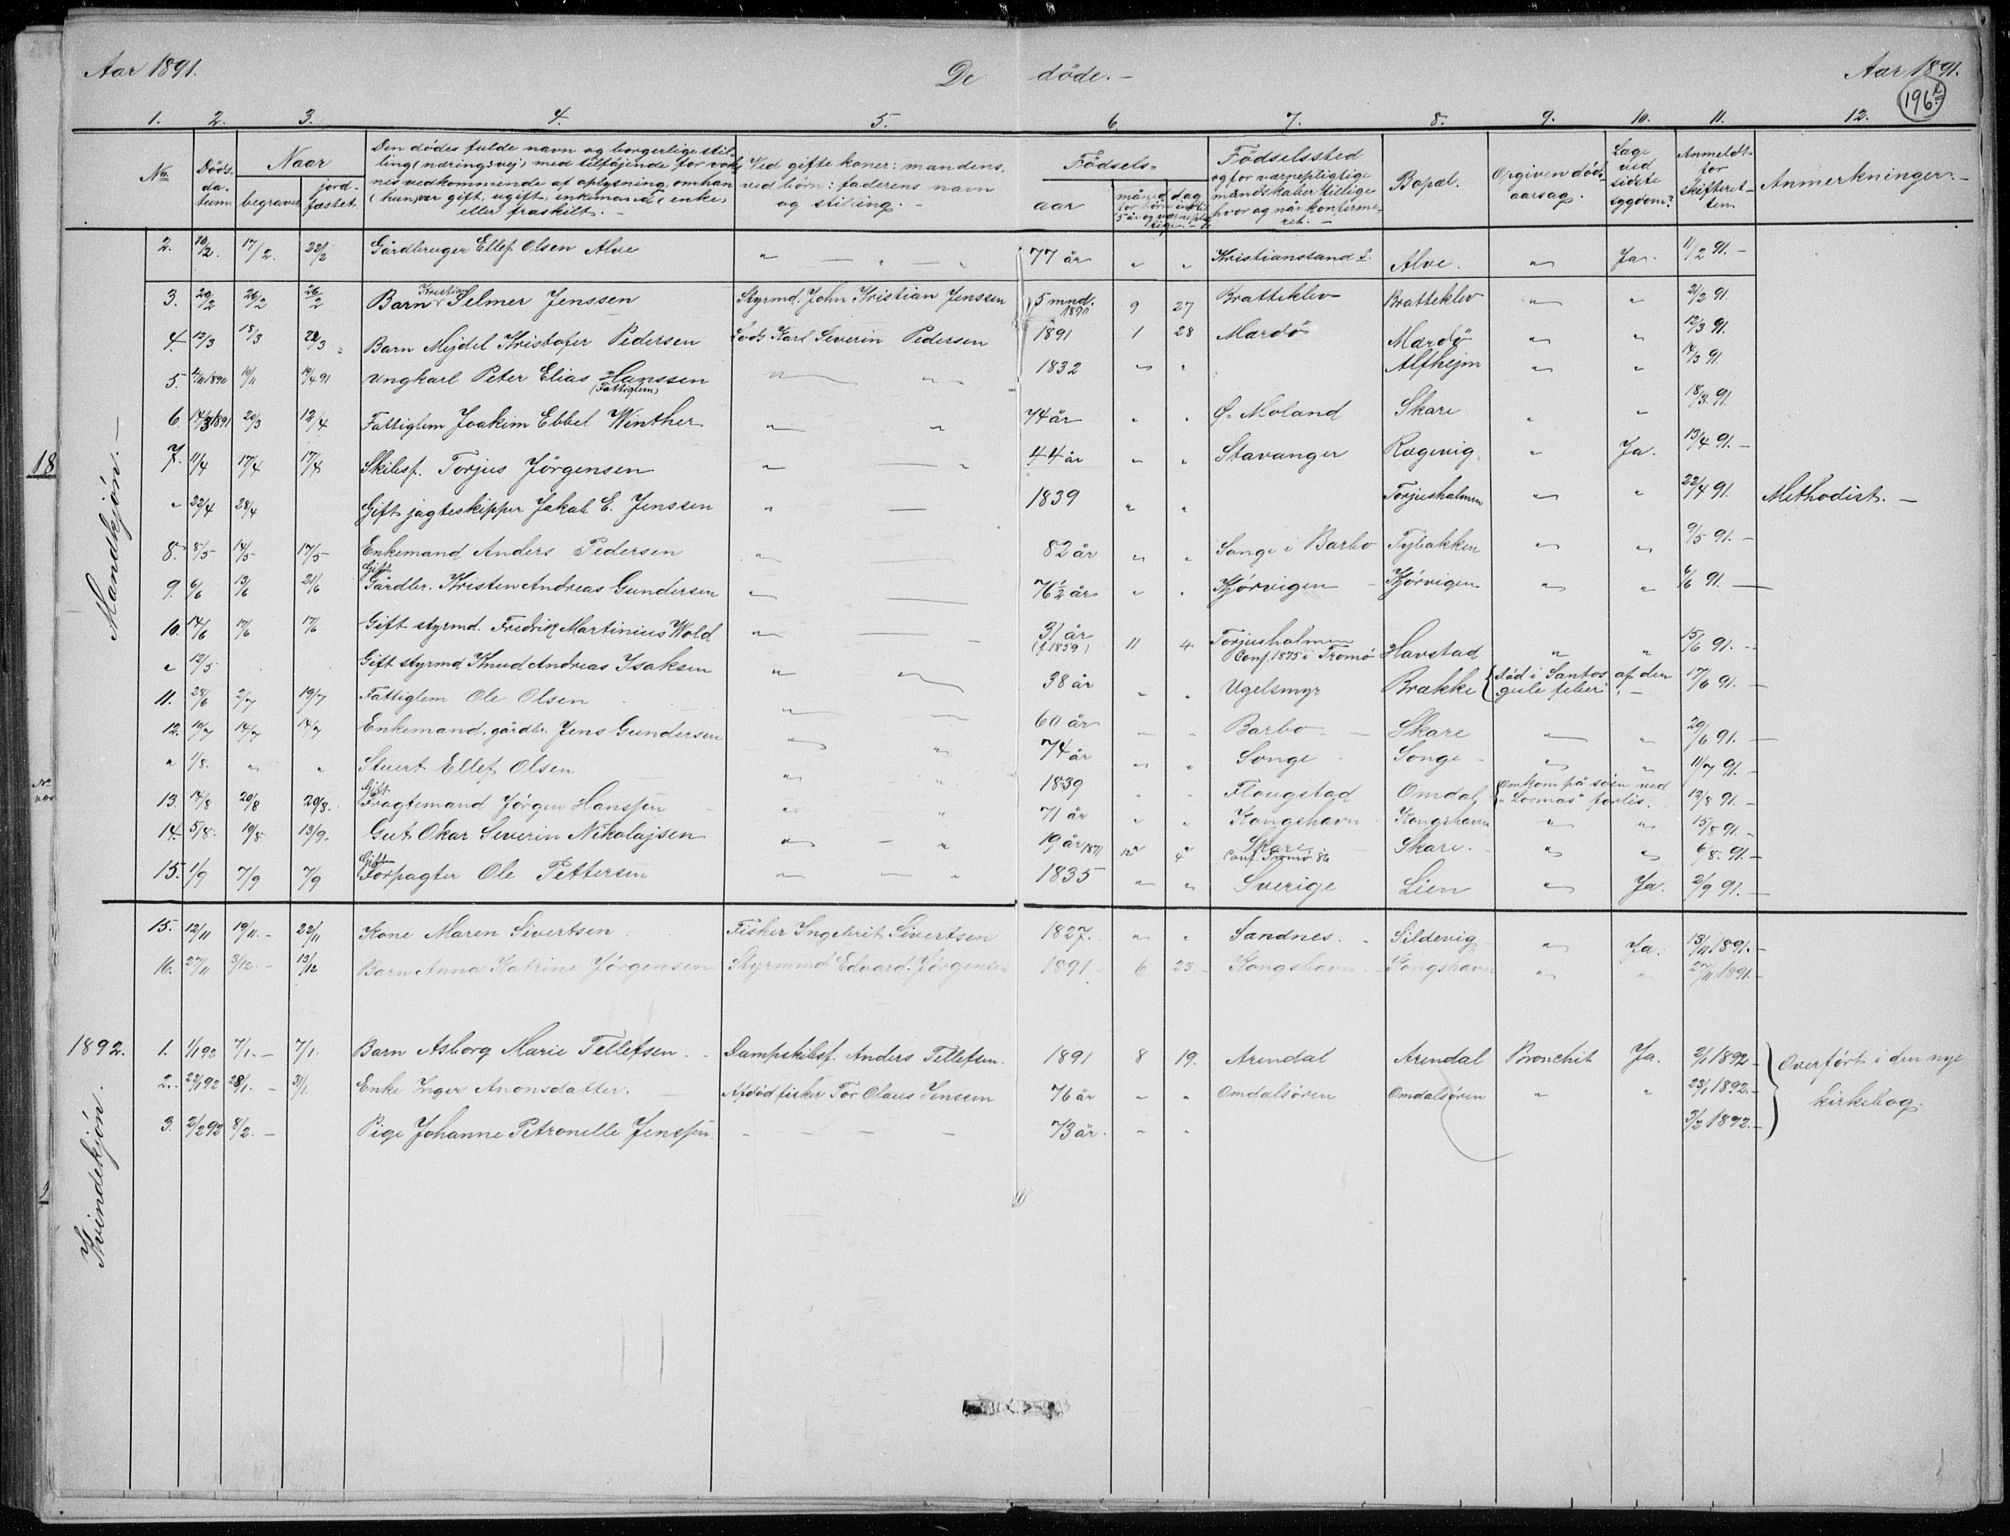 Aar 1891. De døde. – Aar 1891.
196
1. 2. 3. 4. 5. 6. 7. 8. 9. 10. 11. 12.
No. Døds-datum. Naar begravet. jordfæstet. Den dødes fulde navn og borgerlige stilling (næringsvej) med tilføjende for voksnes vedkommende af oplysning, om han (hun) var gift, ugift, enkemand (enke) eller fraskilt. – Ved gifte koner: mandens, ved børn: faderens navn og stilling. – Fødsels- aar måned dag Fødselssted og for værnepligtige mandskaber tillige hvor og når konfirmeret. – Bopæl. Opgiven dødsaarsag. Læge ved sidste sygdom? Anmeldt for skifteretten. Anmerkninger. –
Mandkjøn. –
2. 10/2 17/2. 22/2 Gårdbruger Ellef Olsen Alve " — " — " 77 år " " Kristianssand S. Alve. " Ja. 11/2 91. –
3. 20/2 26/2 26/2 Barn Kristian Selmer Jenssen Styrmd. John Kristian Jenssen 5 mnd. 1890 9 27 Bratteklev Bratteklev " " 21/2 91.
4. 12/3 18/3 22/3 Barn Mejdel Kristofer Pedersen Lods Karl Severin Pedersen 1891 1 28 Mærdø Mærdø " " 12/3 91.
5. 1890 10/11 19/4 91 Ungkarl Peter Elias Hanssen (Fattiglem) " " 1832 " " Alfhejm " " 14/3 91
6. 14/3 1891 20/3 12/4 Fattiglem Joakim Ebbel Winther " " 74 år " " Ø. Moland Skare " " 18/3 91.
7. 11/4 17/4 17/4 Skibsf. Torjus Jørgensen " — " 44 år " " Stavanger Rægevig " Ja. 13/4 91. –
" 22/4 28/4 Gift jagteskipper Jakob E. Jenssen " — 1839 " " Torjusholmen " " 22/4 91. Methodist. –
8. 8/5 14/5 17/5 Enkemand Anders Pedersen " — 82 år " " Songe i Barbo Tybakken " " 9/5 91. –
9. 6/6 13/6 21/6 Gift Gårdbr. Kristen Andreas Gundersen " — 76 1/2 år " " Kjørvigen Kjørvigen " " 6/6 91. —
10. 14/6 17/6 17/6 Gift styrmd. Fredrik Martinius Wold " — 31 år (f. 1859) 11 4 Torjusholmen Conf. 1875 i Tromø Havstad " " 15/6 91. –
" 12/5 Gift styrmd Knud Andreas Isaksen " " 38 år " " Ugelsmyr Brække Død i Santos af den gule feber. – 17/6 91. –
11. 28/6 2/7 19/7 Fattiglem Ole Olsen " — 60 år " " Barbo Skare " " 29/6 91. –
12. 10/7 14/7 14/7 Enkemand, gårdbr. Jens Gundersen " " 74 år " " Songe Songe " " 11/7 91. –
" 1/8. " " Stuert Ellef Olsen " " 1839 " " Flaugstad Omdal Omkom på søen ved "Lormas" forlis. 12/8 91. –
13. 14/8 20/8 20/8. Gift Fragtemand Jørgen Hanssen " " 71 år " " Kongshavn Kongshavn " " 15/8 91. –
14. 5/8. 19/8 13/9. Gut Oskar Severin Nikolajsen " — " 19 år 1871 12 4 Skare Conf. Tromø 86 Skare. " " 6/8. 91. –
15. 1/9 7/9 7/9 Gift Forpagter Ole Pettersen " — " 1835 " " Sverige Lien " Ja. 2/9 91. –
Kvindekjøn.
15. 12/11 19/11. – 22/11 Kone Maren Sivertsen Fisker Ingebrit Sivertsen 1827. " " Sandnes. Sildevig " Ja. 13/11 1891. –
16. 27/11 3/12. – 13/12 Barn Anna Katrine Jørgensen Styrmnd Edvard Jørgensen 1891 6 23. Kongshavn Kongshavn " " 27/11 1891. –
1892. 1. 1/1 92 7/1. – 7/1. Barn Asborg Marie Tellefsen. Dampskibsf. Anders Tellefsen. 1891 8 19. Arendal Arendal Bronchit Ja. 2/1 1892 – Overført i den nye
2. 22/1 92 28/1. – 31/1. Enke Inger Anonsdatter. Afdød fisker Tor Olaus Jenssen 76 år " " Omdalsøren Omdalsøren " " 23/1 1892. – kirkebog.
3. 2/2 92 8/2. – Pige Johanne Petronelle Jenssen. – – – – 73 år. " " 3/2 1892. –